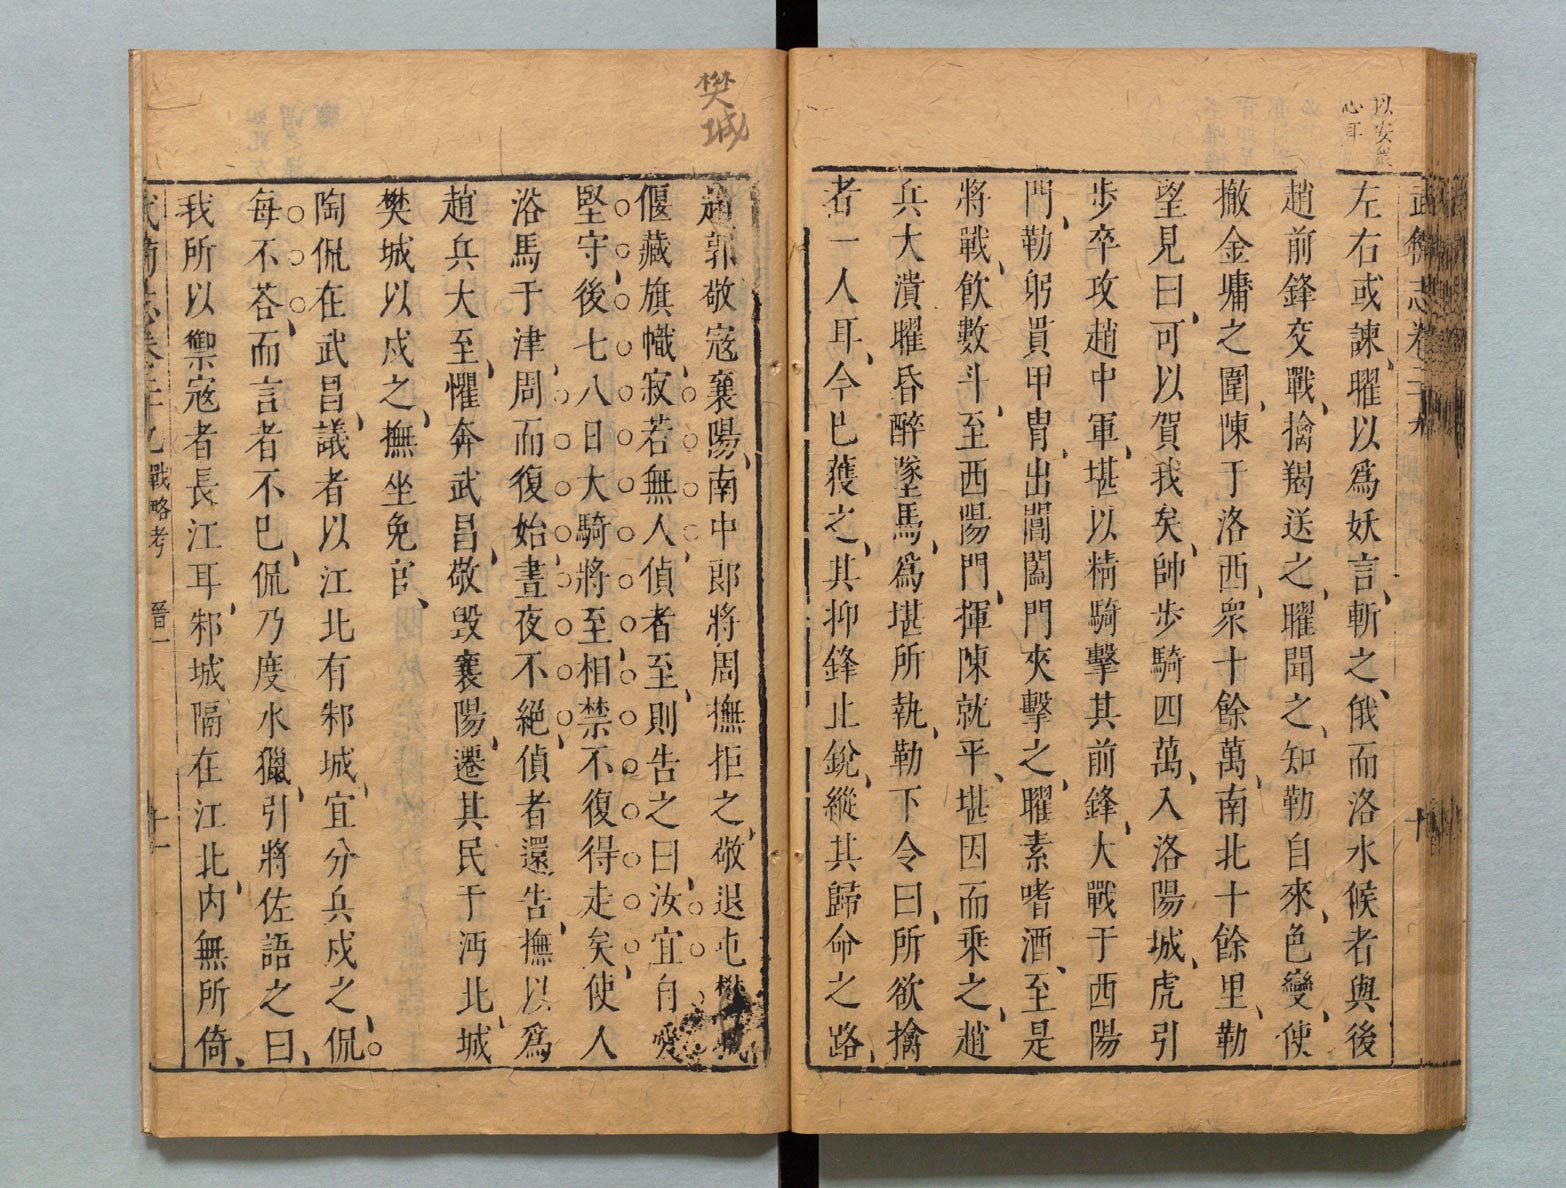 以安衆
心耳
武備志卷二十九
十
左右或諫、曜以爲妖言、斬之、俄而洛水候者與後
趙前鋒交戰、擒羯送之、曜聞之、知勒自來、色變、使
撤金墉之圍、陳于洛西、衆十餘萬、南北十餘里、勒
望見曰、可以賀我矣、帥步騎四萬、入洛陽城、虎引
步卒攻趙中軍、堪以精騎擊其前鋒、大戰于西陽
門、勒躬貫甲冑、出閶闔門夾擊之、曜素嗜酒、至是
將戰、飲數斗、至西陽門、揮陳就平、堪因而乘之、趙
兵大潰曜昏醉墜馬、爲堪所執、勒下令曰、所欲擒
者一人耳、今已獲之、其抑鋒止銳、縱其歸命之路、
樊城
趙郭敬寇襄陽、南中郎將周撫拒之、敬退屯樊城
偃藏旗幟、寂若無人、偵者至、則告之曰、汝宜自愛
堅守、後七八日大騎將至、相禁不復得走矣、使人
浴馬于津、周而復始、晝夜不絕、偵者還告、撫以爲
趙兵大至、懼奔武昌、敬毀襄陽、遷其民于沔北、城
樊城以戍之、撫坐免官、
陶侃在武昌、議者以江北有邾城、宜分兵戍之、侃
每不荅、而言者不已、侃乃度水獵、引將佐語之曰、
我所以禦寇者長江耳、邾城隔在江北、內無所倚、
武備志卷二十九 戰略考 晉一 十一